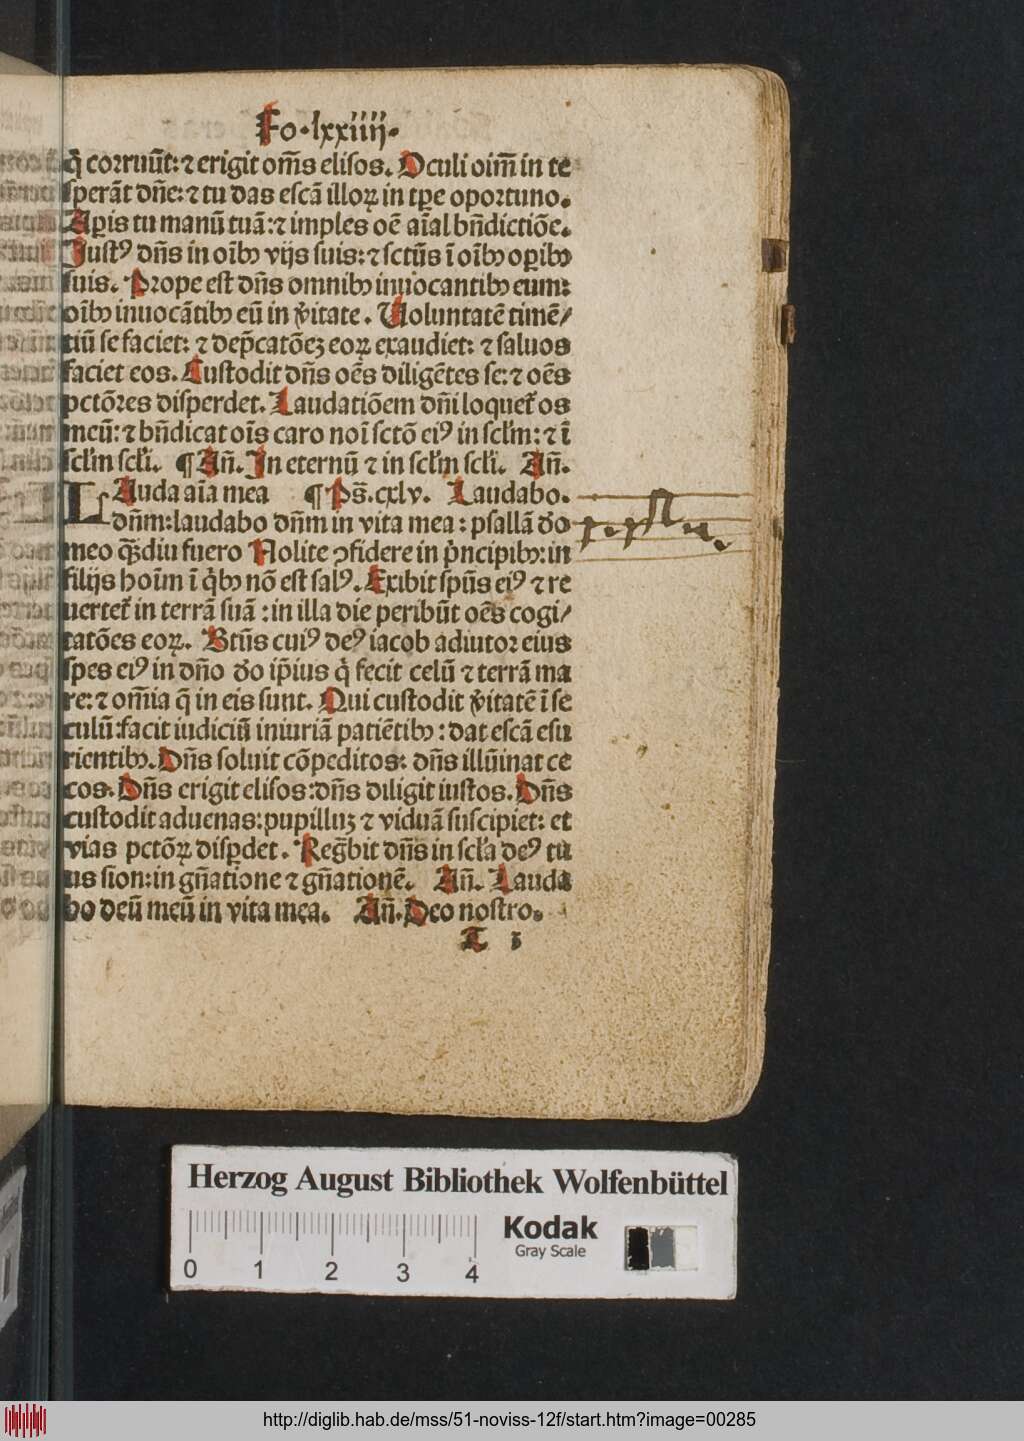 Fo·lxxiiij·
q̇ corruūt: ⁊ erigit om̄s elisos. Oculi oim̄ in te
sperāt dn̄e: ⁊ tu das escā illoꝝ in tꝑe oportuno.
Aꝑis tu manū tuā: ⁊ imples oē aīal bn̄dictiōe.
Iustꝰ dn̄s in oībꝫ vijs suis: ⁊ sctūs ī oībꝫ oꝑibꝫ
suis. Prope est dn̄s omnibꝫ inuocantibꝫ eum:
oībꝫ inuocātibꝫ eū in v̓itate. Uoluntatē timē/
tiū se faciet: ⁊ dep̄catōeꝫ eoꝝ exaudiet: ⁊ saluos
faciet eos. Custodit dn̄s oēs diligētes se: ⁊ oēs
pctōres disperdet. Laudatiōem dn̄i loquet̓ os
meū: ⁊ bn̄dicat oīs caro noī sctō eiꝰ in scl̓m: ⁊ ī
scl̓m scl̓i. ¶ Añ. In eternū ⁊ in scl̓m scl̓i. Añ.
LAuda aīa mea ¶ Ps̄. cxlv. Laudabo.
dn̄m: laudabo dn̄m in vita mea: psallā d̓o
meo qꝫ̄diu fuero Nolite ꝯfidere in p̓ncipibꝫ: in
filijs hoīm ī q̓bꝫ nō est salꝰ. Exibit spūs eiꝰ ⁊ re
uertet̓ in terrā suā: in illa die peribūt oēs cogi/
tatōes eoꝝ. Btūs cuiꝰ deꝰ iacob adiutor eius
spes eiꝰ in dn̄o d̓o ip̄ius q̇ fecit celū ⁊ terrā ma
re: ⁊ om̄ia q̄ in eis sunt. Qui custodit v̓itatē ī se
culū: facit iudiciū iniuriā patiētibꝫ: dat escā esu
rientibꝫ. Dn̄s soluit cōpeditos: dn̄s illūinat ce
cos. Dn̄s erigit elisos: dn̄s diligit iustos. Dn̄s
custodit aduenas: pupilluꝫ ⁊ viduā suscipiet: et
vias pctōꝝ disꝑdet. Reḡbit dn̄s in scl̓a deꝰ tu
us sion: in gn̄atione ⁊ gn̄ationē. Añ. Lauda
bo deū meū in vita mea. Añ. Deo nostro.
Herzog August Bibliothek Wolfenbüttel
Kodak
Gray Scale
0 1 2 3 4
http://diglib.hab.de/mss/51-noviss-12f/start.htm?image=00285